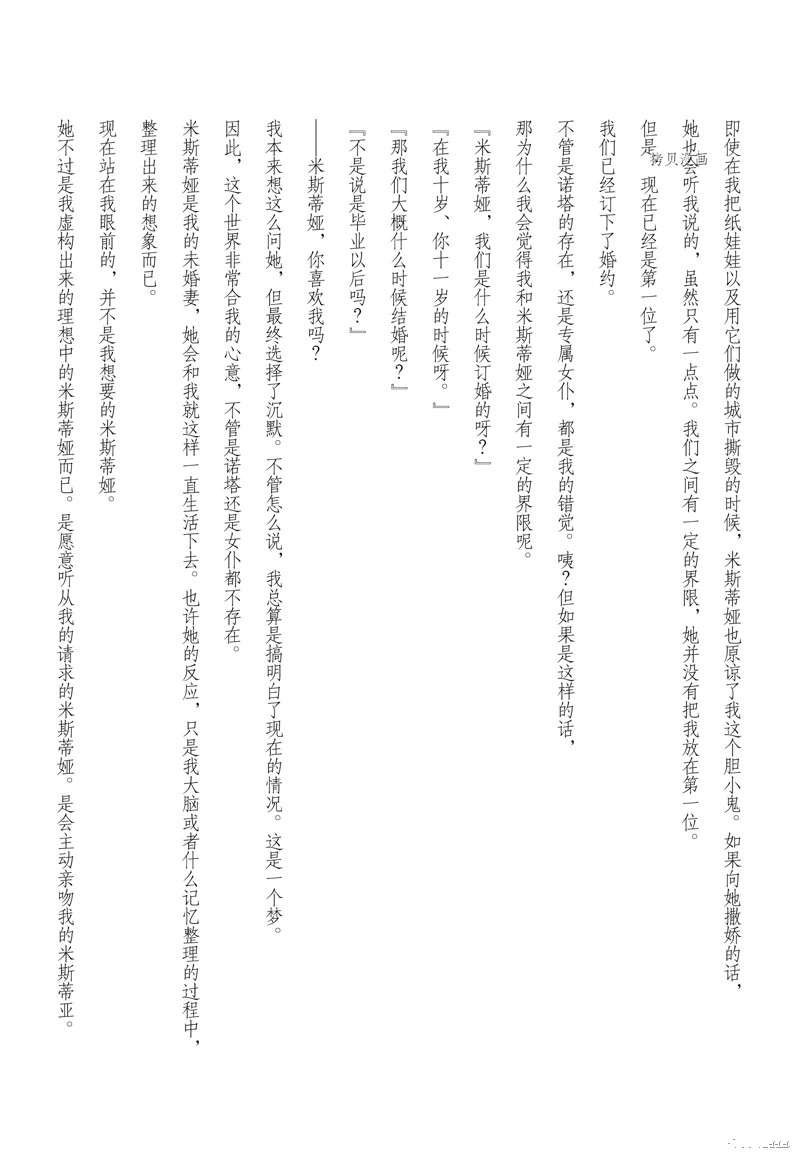 即使在我把纸娃娃以及用它们做的城市撕毁的时候，米斯蒂娅也原谅了我这个胆小鬼。如果向她撒娇的话，
她也会听我说的，虽然只有一点点。我们之间有一定的界限，她并没有把我放在第一位。
但是，现在已经是第一位了。
我们已经订下了婚约。
不管是诺塔的存在，还是专属女仆，都是我的错觉。咦？但如果是这样的话，
那为什么我会觉得我和米斯蒂娅之间有一定的界限呢。
『米斯蒂娅，我们是什么时候订婚的呀？』
『在我十岁、你十一岁的时候呀。』
『那我们大概什么时候结婚呢？』
『不是说是毕业以后吗？』
——米斯蒂娅，你喜欢我吗？
我本来想这么问她，但最终选择了沉默。不管怎么说，我总算是搞明白了现在的情况。这是一个梦。
因此，这个世界非常合我的心意，不管是诺塔还是女仆都不存在。
米斯蒂娅是我的未婚妻，她会和我就这样一直生活下去。也许她的反应，只是我大脑或者什么记忆整理的过程中，
整理出来的想象而已。
现在站在我眼前的，并不是我想要的米斯蒂娅。
她不过是我虚构出来的理想中的米斯蒂娅而已。是愿意听从我的请求的米斯蒂娅。是会主动亲吻我的米斯蒂亚。
拷贝漫画